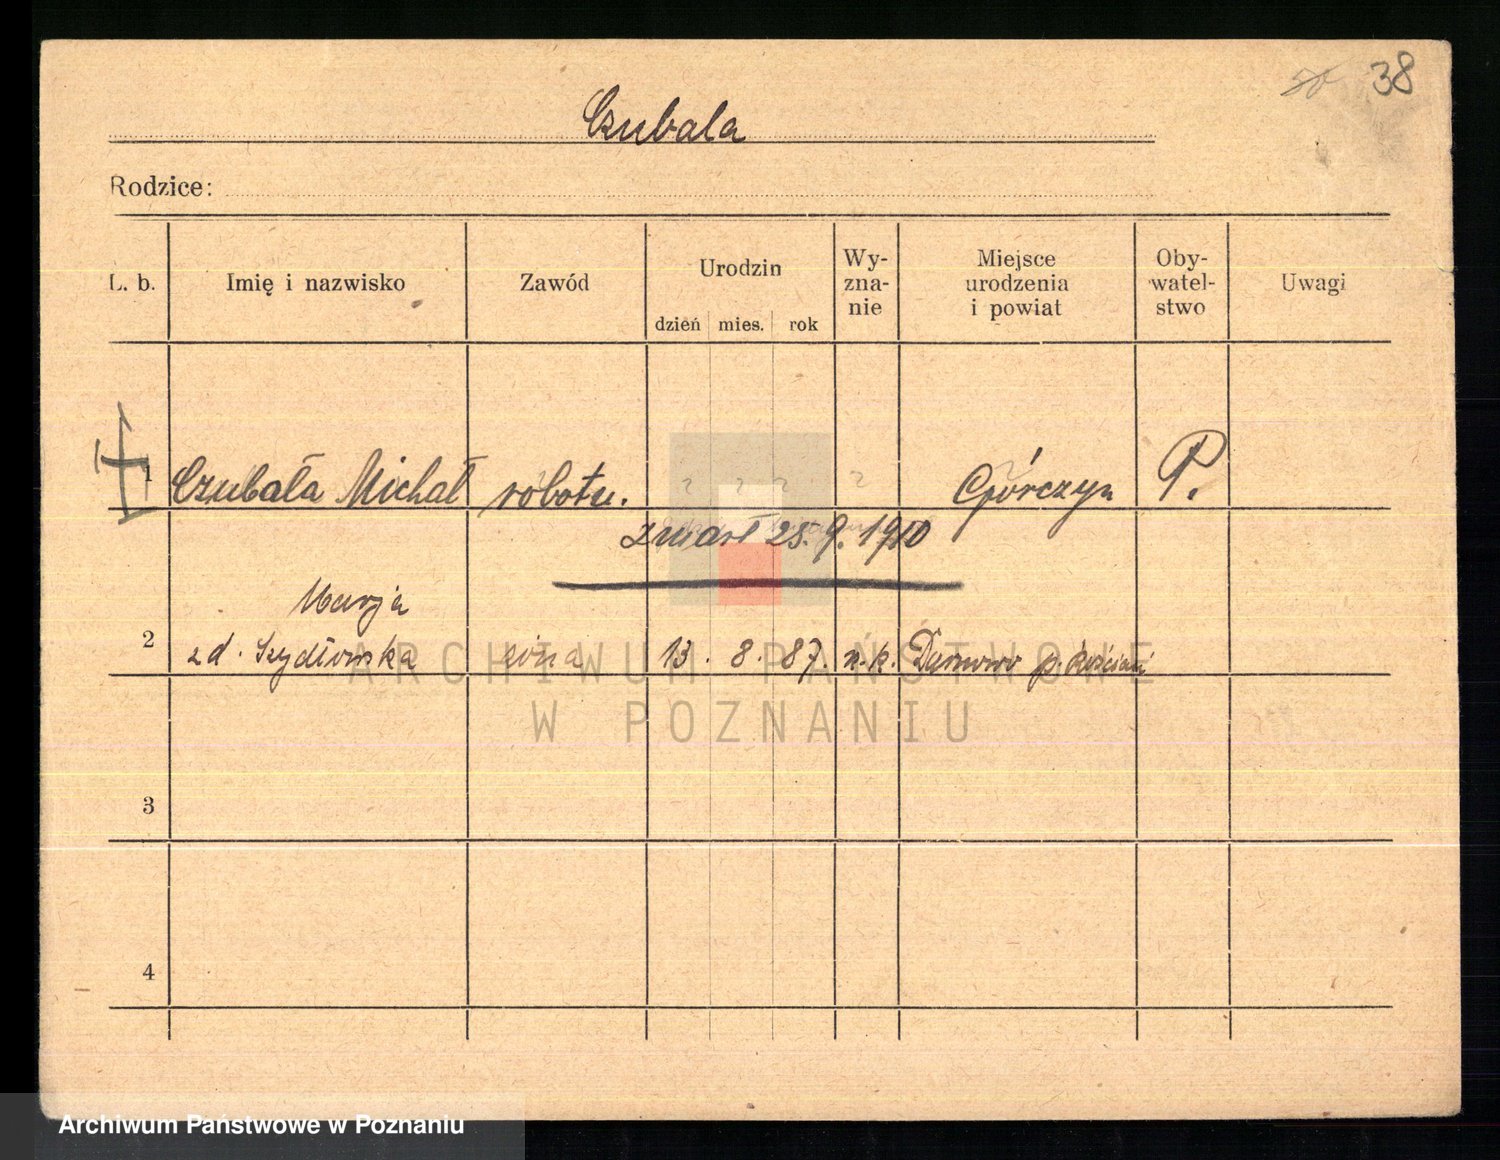 38
Czubala
Rodzice:
L. b. Imię i nazwisko Zawód Urodzin dzień mies. rok Wy-zna-nie Miejsce urodzenia i powiat Oby-watel-stwo Uwagi
1 Czubała Michał robotn. ? ? ? ? Górczyn P.
zmarł 25. 9. 1910
Marja
2 zd. Szydłowska żona 13. 8. 87. n. k. p. Kościan
3
4
ARCHIWUM PAŃSTWOWE
W POZNANIU
Archiwum Państwowe w Poznaniu